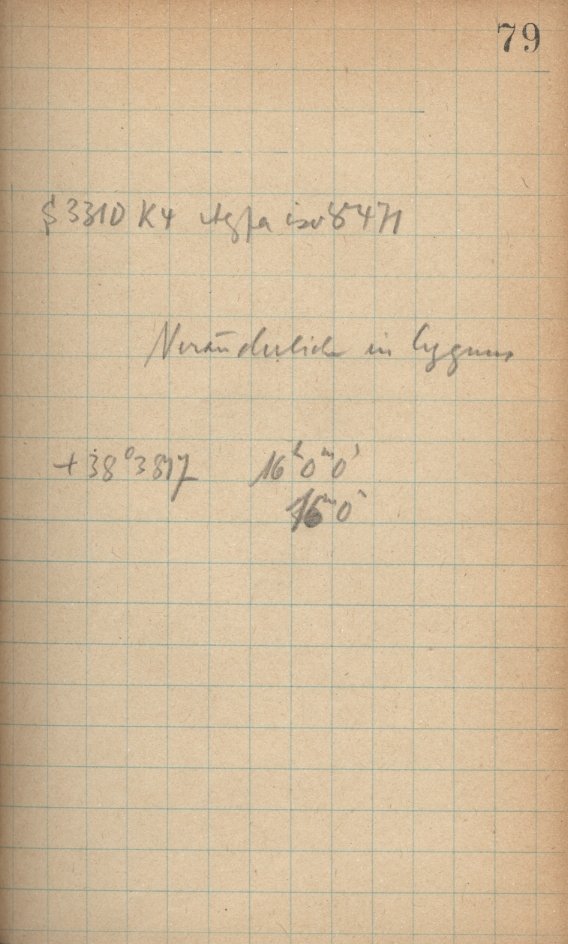 79
S 3310 K4 Agfa iso 8471
Veränderliche in Cygnus
+38°3817 16ʰ0ᵐ0ˢ
16ᵐ0ˢ